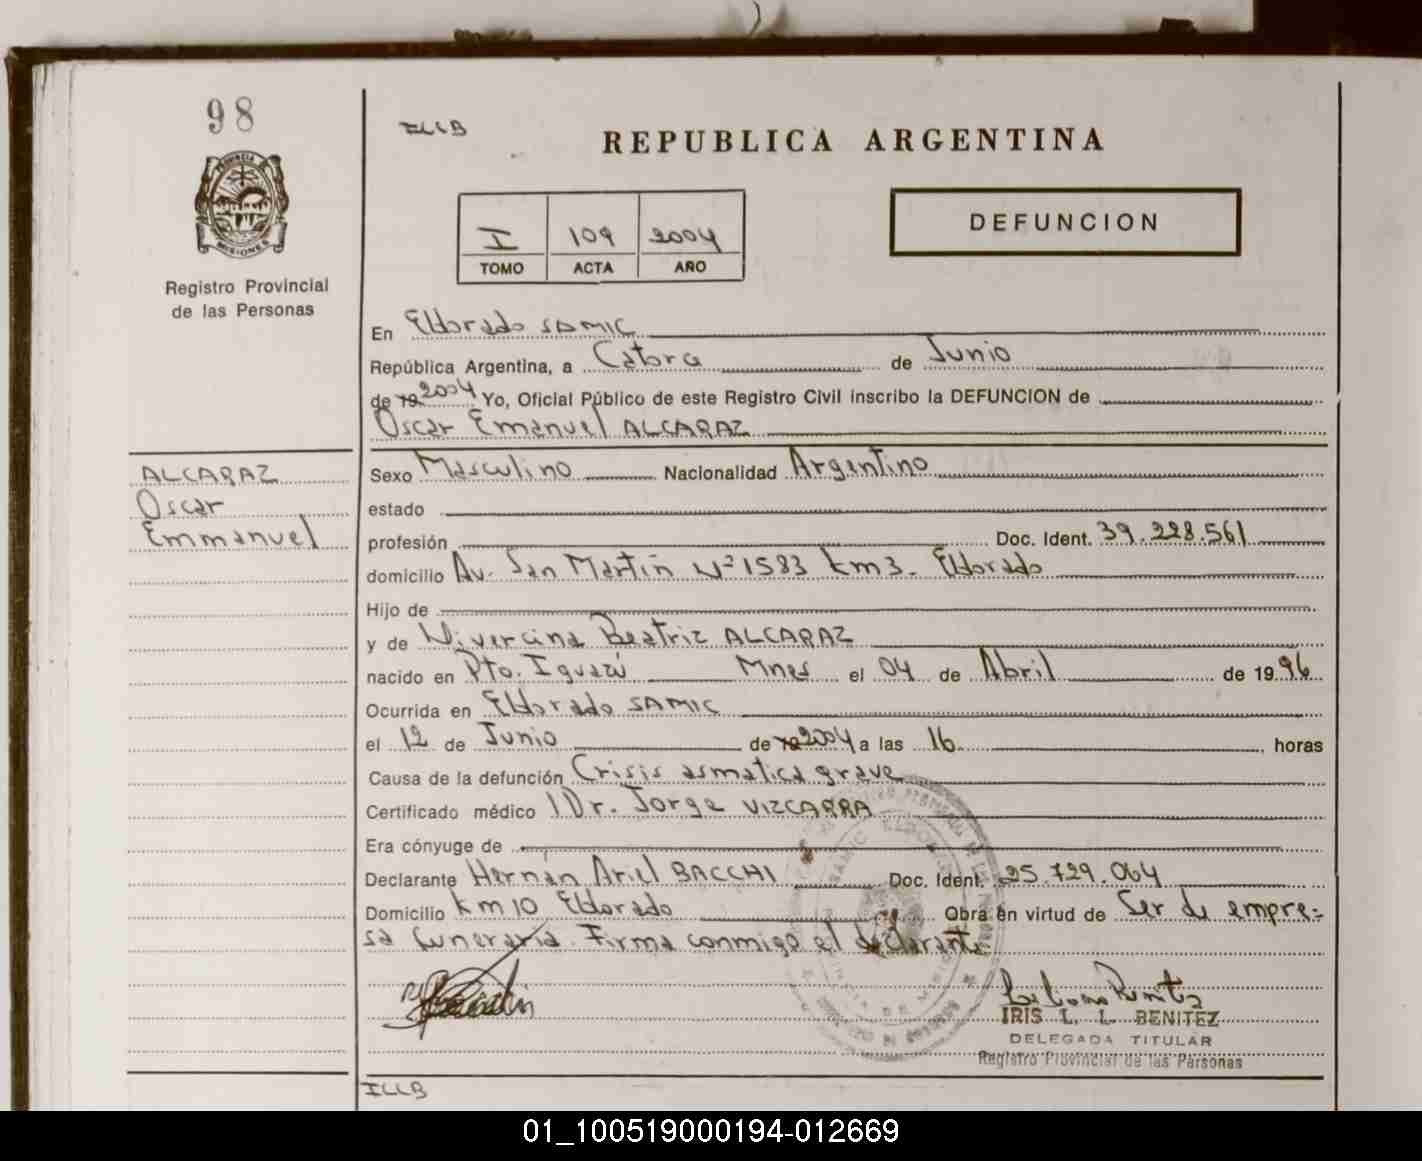 98
ILLB
REPUBLICA ARGENTINA
PROVINCIA DE
MISIONES
I 109 2004
TOMO ACTA AÑO
DEFUNCION
Registro Provincial
de las Personas
En Eldorado SAMIC
República Argentina, a Catorce de Junio
de 19 2004 Yo, Oficial Público de este Registro Civil inscribo la DEFUNCION de
Oscar Emanuel ALCARAZ
ALCARAZ
Oscar
Emmanuel
Sexo Masculino Nacionalidad Argentino
estado
profesión Doc. Ident. 39.228.561
domicilio Av. San Martín Nº 1583 km 3. Eldorado
Hijo de
y de Nivercina Beatriz ALCARAZ
nacido en Pto. Iguazú Mnes el 04 de Abril de 1996
Ocurrida en Eldorado SAMIC
el 12 de Junio de 19 2004 a las 16 horas
Causa de la defunción Crisis asmatica grave
Certificado médico Dr. Jorge VIZCARRA
Era cónyuge de
Declarante Hernán Ariel BACCHI Doc. Ident. 25.729.064
Domicilio km 10 Eldorado Obra en virtud de Ser de empre=
sa funeraria. Firma conmigo el declarante
IRIS L. L. BENITEZ
DELEGADA TITULAR
Registro Provincial de las Personas
ILLB
01_100519000194-012669